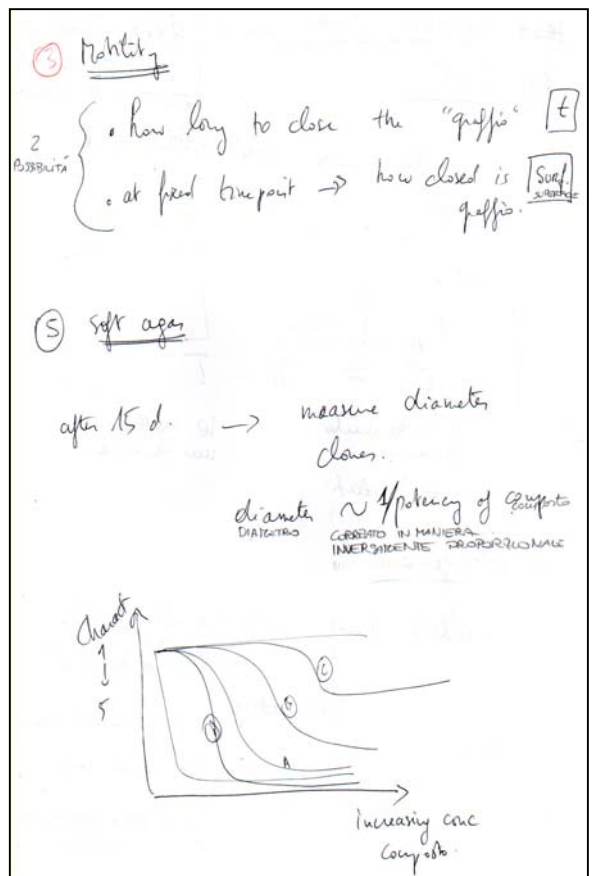 ③ Motility
2 POSSIBILITÁ
• how long to close the "graffio" t
• at fixed timepoint → how closed is graffio. Surf. SUPERFICIE
⑤ Soft agar
after 15 d. → measure diameter
clones.
diameter ~ 1/potency of composto
DIAMETRO CORRELATO IN MANIERA
INVERSAMENTE PROPORZIONALE
Charact
1
↓
5
C
A
increasing conc
composto.